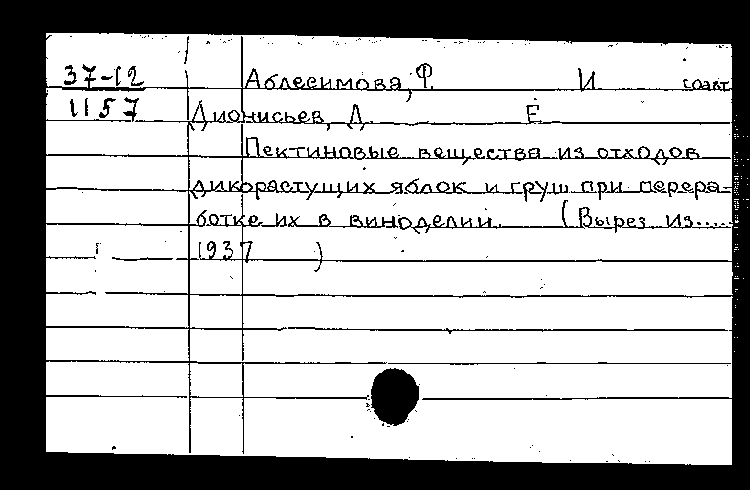 37-12
1157
Аблесимова, Ф. И соавт
Дионисьев, Д Е
Пектиновые вещества из отходов
дикорастущих яблок и груш при перера-
ботке их в виноделии. (Вырез из.....
1937 )